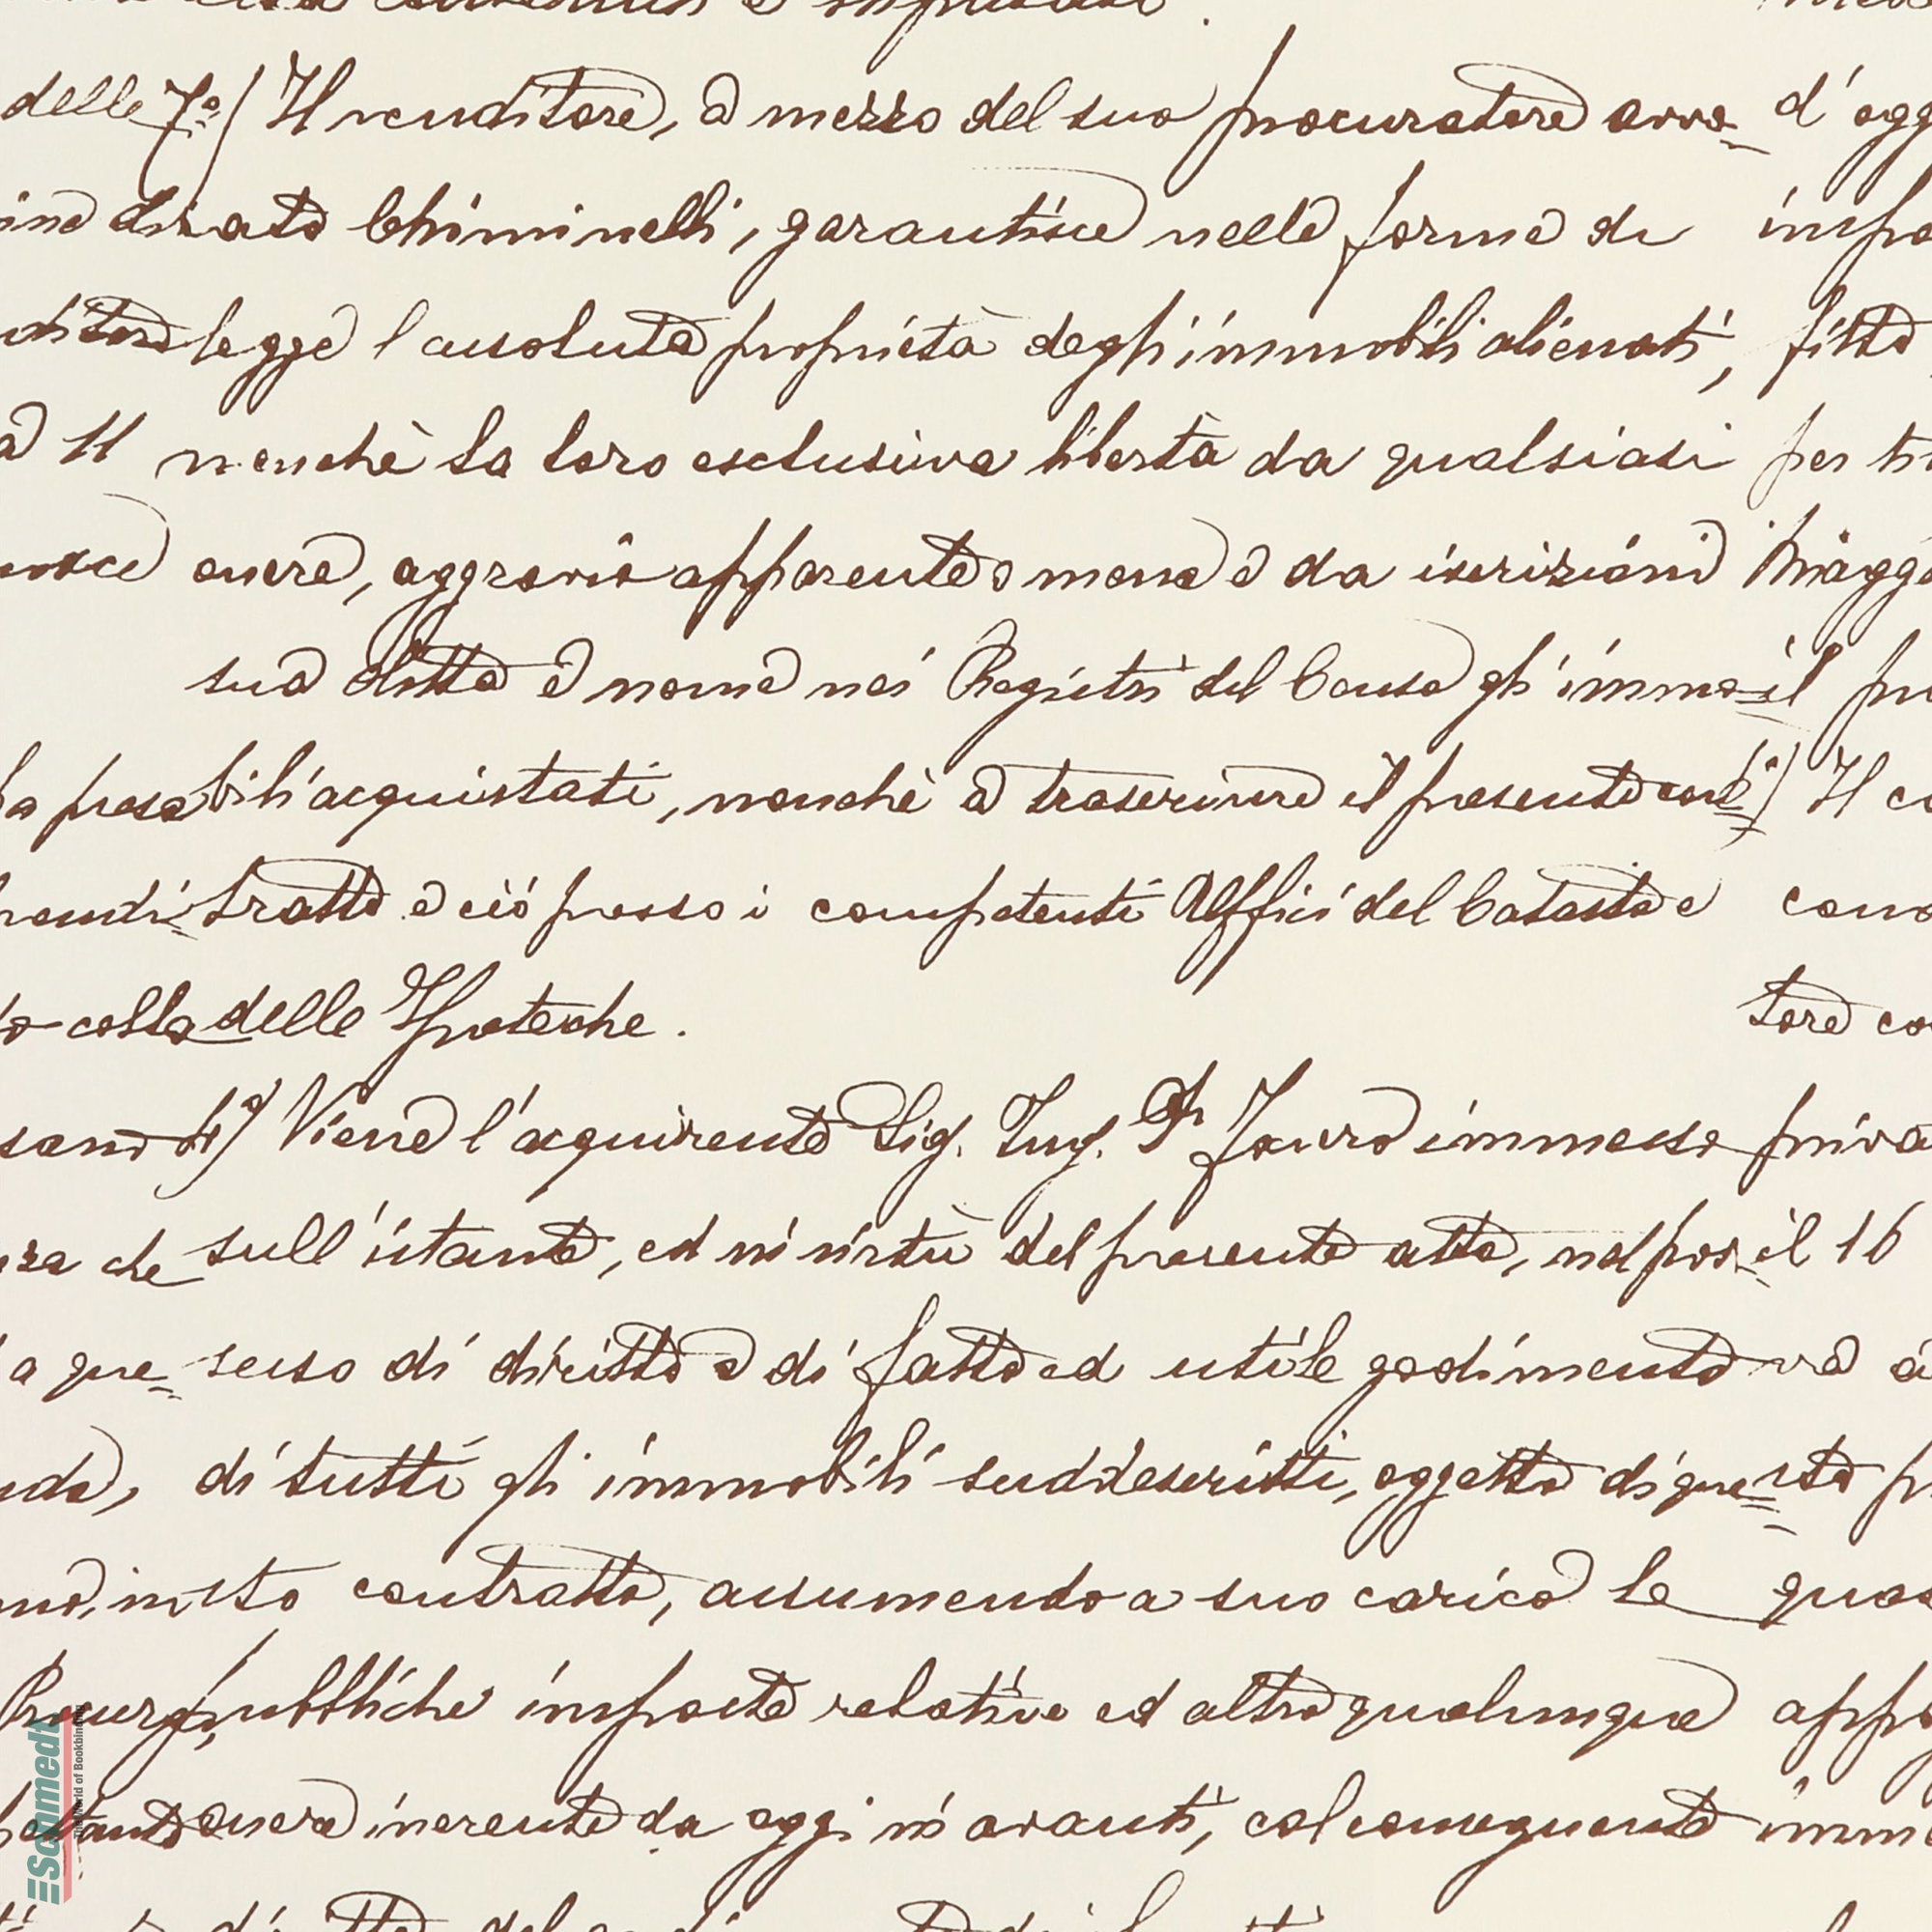 delle 7º) Il venditore, a mezzo del suo procuratore avvo= d'ogg
ine dirato Chiminelli, garantisce nelle forme di impo
ditore legge l'assoluta proprietà degli immobili alienati, fitto
a Il nonchè la loro esclusiva libertà da qualsiasi per ti
nosce onere, aggravio apparente o meno e da iscrizioni Magg
sua ditta e nome nei Registri del Censo gli immo= il pr
la presa bili acquistati, nonchè a trascrivere il presente con= ) Il co
vendi= tratto e ciò presso i competenti Uffici del Catasto e cono
colla delle Ipoteche. tore co
Viene l'acquirente Sig. Ing. Favero immesso priva
za che sull'istante, ed in virtù del presente atto, nel pos= il 16
a que= sesso di diritto e di fatto ed utile godimento va a
di tutti gli immobili suddescritti, oggetto di que= sto p
in sto contratto, assumendo a suo carico le quas
pubbliche imposte relative ed altro qualunque appo
onere inerente da oggi in avanti, col conseguente imm
Schmedt
The World of Bookbinding